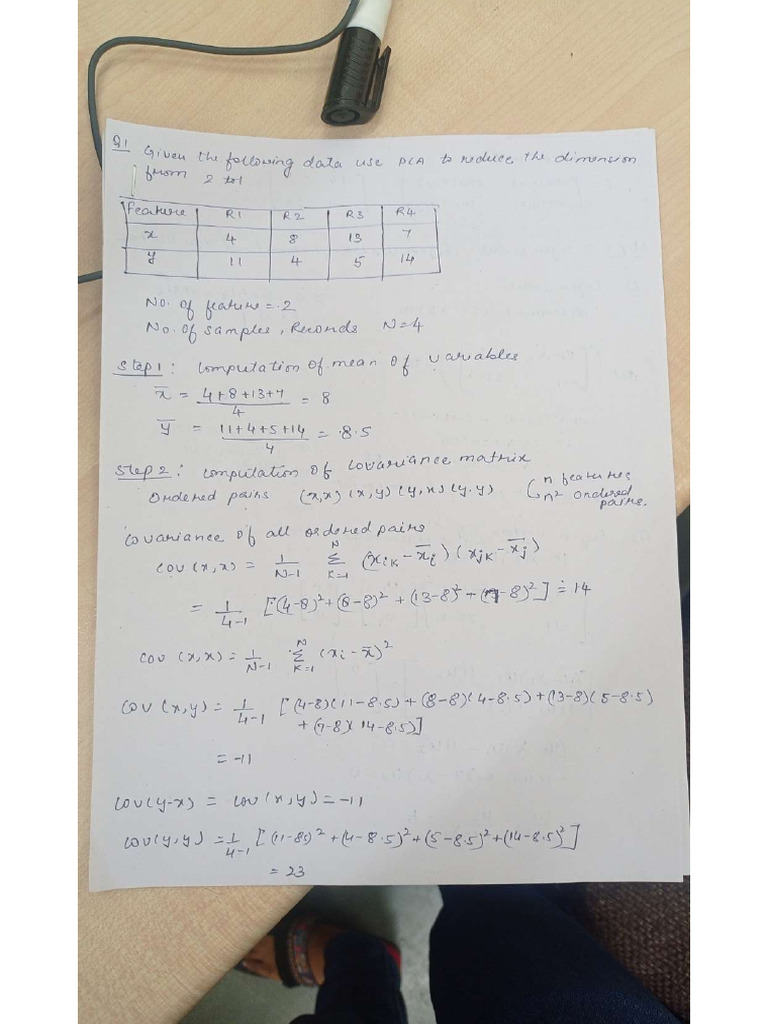 Q1 Given the following data use PCA to reduce the dimension
from 2 to 1
Feature R1 R2 R3 R4
x 4 8 13 7
y 11 4 5 14
No. of feature = 2
No. of samples, Records N=4
Step 1: Computation of mean of variables
x̄ = (4+8+13+7)/4 = 8
ȳ = (11+4+5+14)/4 = 8.5
Step 2: Computation of Covariance matrix
Ordered pairs (x,x) (x,y) (y,x) (y,y) n features
n² ordered pairs.
Covariance of all ordered pairs
Cov (x,x) = 1/(N-1) Σ_{k=1}^{N} (x_ik - x̄_i) (x_jk - x̄_j)
= 1/(4-1) [(4-8)² + (8-8)² + (13-8)² + (7-8)²] = 14
Cov (x,x) = 1/(N-1) Σ_{k=1}^{N} (x_i - x̄)²
Cov (x,y) = 1/(4-1) [(4-8)(11-8.5) + (8-8)(4-8.5) + (13-8)(5-8.5)
+ (7-8)(14-8.5)]
= -11
Cov(y-x) = Cov(x,y) = -11
Cov(y,y) = 1/(4-1) [(11-85)² + (4-8.5)² + (5-8.5)² + (14-8.5)²]
= 23